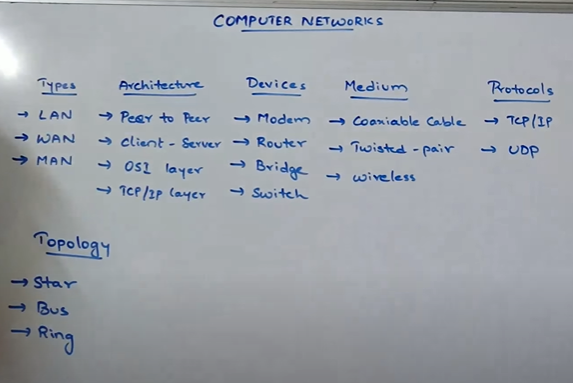 COMPUTER NETWORKS
Types
→ LAN
→ WAN
→ MAN
Architecture
→ Peer to Peer
→ Client - Server
→ OSI layer
→ TCP/IP layer
Devices
→ Modem
→ Router
→ Bridge
→ Switch
Medium
→ Coaxiable Cable
→ Twisted - pair
→ wireless
Protocols
→ TCP/IP
→ UDP
Topology
→ Star
→ Bus
→ Ring